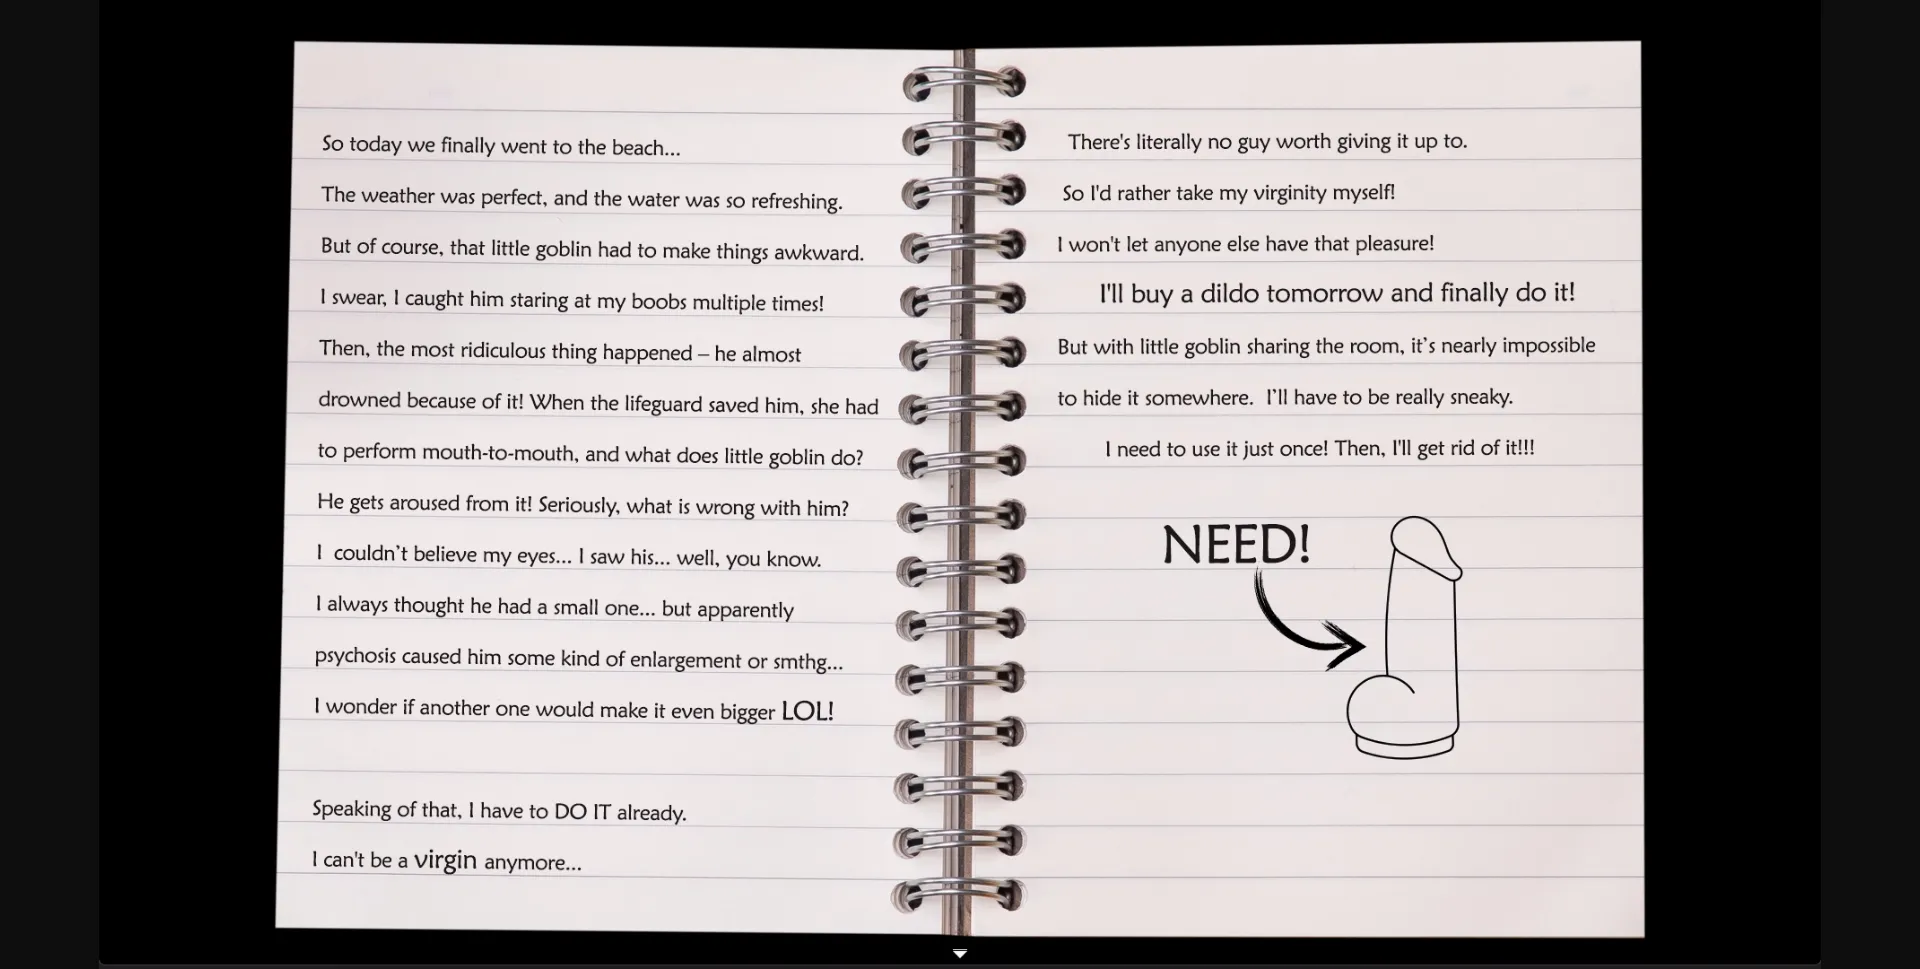 So today we finally went to the beach...
The weather was perfect, and the water was so refreshing.
But of course, that little goblin had to make things awkward.
I swear, I caught him staring at my boobs multiple times!
Then, the most ridiculous thing happened – he almost
drowned because of it! When the lifeguard saved him, she had
to perform mouth-to-mouth, and what does little goblin do?
He gets aroused from it! Seriously, what is wrong with him?
I couldn’t believe my eyes... I saw his... well, you know.
I always thought he had a small one... but apparently
psychosis caused him some kind of enlargement or smthg...
I wonder if another one would make it even bigger LOL!
Speaking of that, I have to DO IT already.
I can't be a virgin anymore...
There's literally no guy worth giving it up to.
So I'd rather take my virginity myself!
I won't let anyone else have that pleasure!
I'll buy a dildo tomorrow and finally do it!
But with little goblin sharing the room, it’s nearly impossible
to hide it somewhere. I’ll have to be really sneaky.
I need to use it just once! Then, I'll get rid of it!!!
NEED!